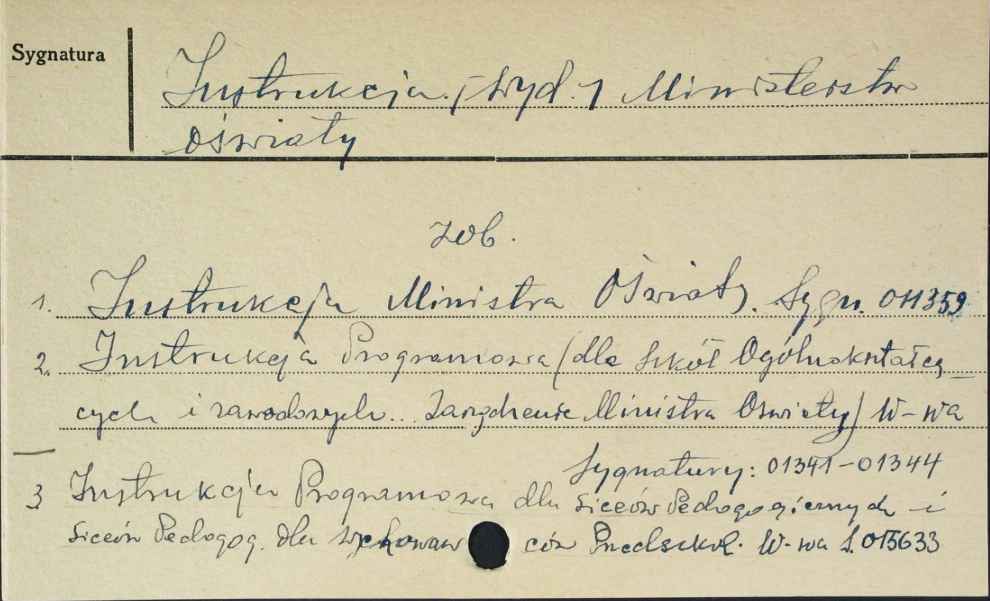 Sygnatura
Instrukcja. /Wyd. / Ministerstw
Oświaty
zob.
1. Instrukcja Ministra Oświaty. Sygn. 011359
2. Instrukcja Programowa (dla Szkół Ogólnokształcą-
cych i zawodowych.. Zarządzenie Ministra Oświaty) W-wa
Sygnatury: 01341-01344
3 Instrukcja Programowa dla Liceów Pedagogicznych i
Liceów Pedagog. dla Wychowaw czoń Przedszkol. W-wa S. 015633